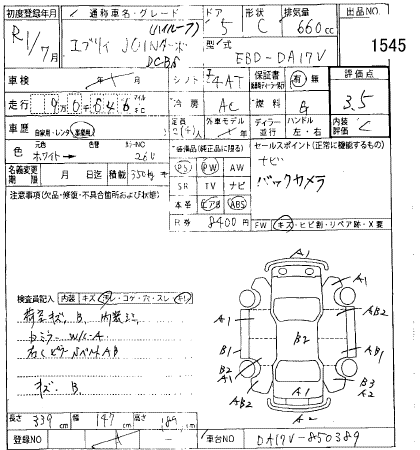 初度登録年月 通称車名・グレード (ハイルーフ) ドア 形状 排気量 出品NO
R1/7月 エブリイ JOINターボ 5 C 660cc 1545
DCBS 型式 EBD-DA17V
車検 年 月 シフト 4AT 保証書 有 無 評価点
走行 冷房 AC 燃料 G 3.5
車歴 自家用・レンタ・事業用 定員 外車モデル 年 ディーラー 並行 ハンドル 左・右 内装評価 C
色 元色 色替 カラーNO 装備品(純正品に限る) セールスポイント(正常に機能するもの)
ホワイト→ 26U PS PW AW ナビ
名義変更期限 月 日迄 積載 350kg SR TV ナビ バックカメラ
注意事項(欠品・修復・不具合箇所および状態) 本革 エアB ABS
R券 8400円 FW キズ・ヒビ割・リペア跡・X要
A1
A1 A1
AB2
検査員記入 内装 キズ・汚レ・コゲ・穴・スレ・キリ
荷室キズ、B、内装ヨゴレ A1 B2 AB2
B1 AB1
B2
A1 B3
キズ、B、 AB2 A1 A2
A2
長さ 339cm 幅 147cm 高さ 189cm
登録NO 車台NO DA17V-850389